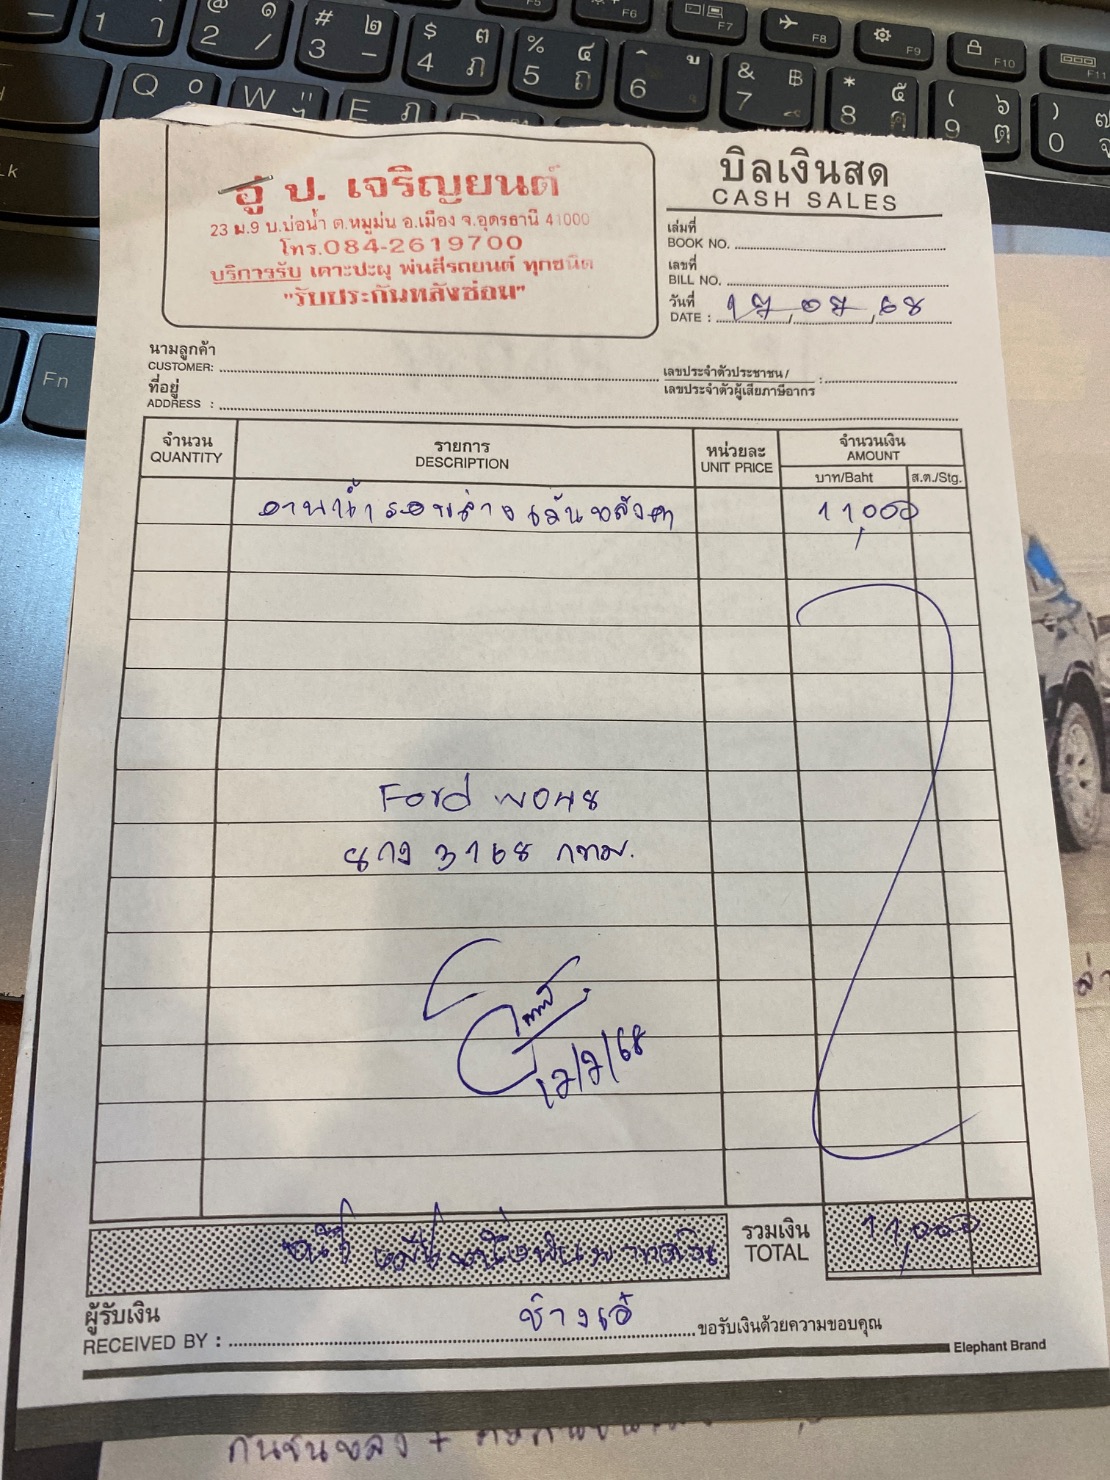 อู่ ป. เจริญยนต์
23 ม.9 บ.บ่อน้ำ ต.หมูม่น อ.เมือง จ.อุดรธานี 41000
โทร.084-2619700
บริการรับ เคาะปะผุ พ่นสีรถยนต์ ทุกชนิด
"รับประกันหลังซ่อม"
บิลเงินสด
CASH SALES
เล่มที่
BOOK NO.
เลขที่
BILL NO.
วันที่
DATE : 17,07,68
นามลูกค้า
CUSTOMER:
ที่อยู่
ADDRESS :
เลขประจำตัวประชาชน /
เลขประจำตัวผู้เสียภาษีอากร :
จำนวน
QUANTITY
รายการ
DESCRIPTION
หน่วยละ
UNIT PRICE
จำนวนเงิน
AMOUNT
บาท/Baht
ส.ต./Stg.
รอบล่าง เว้นหลังคา 11,000
Ford
3168 กทม.
รวมเงิน
TOTAL
11,000
ผู้รับเงิน
RECEIVED BY :
ช่างเอ้
ขอรับเงินด้วยความขอบคุณ
Elephant Brand